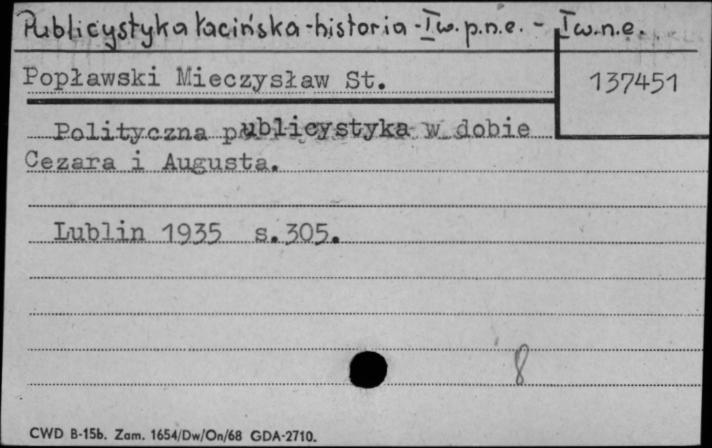 Publicystyka łacińska-historia-I w. p.n.e. - I w.n.e.
Popławski Mieczysław St.
137451
Polityczna publicystyka w dobie
Cezara i Augusta.
Lublin 1935 s.305.
8
CWD B-15b. Zam. 1654/Dw/On/68 GDA-2710.